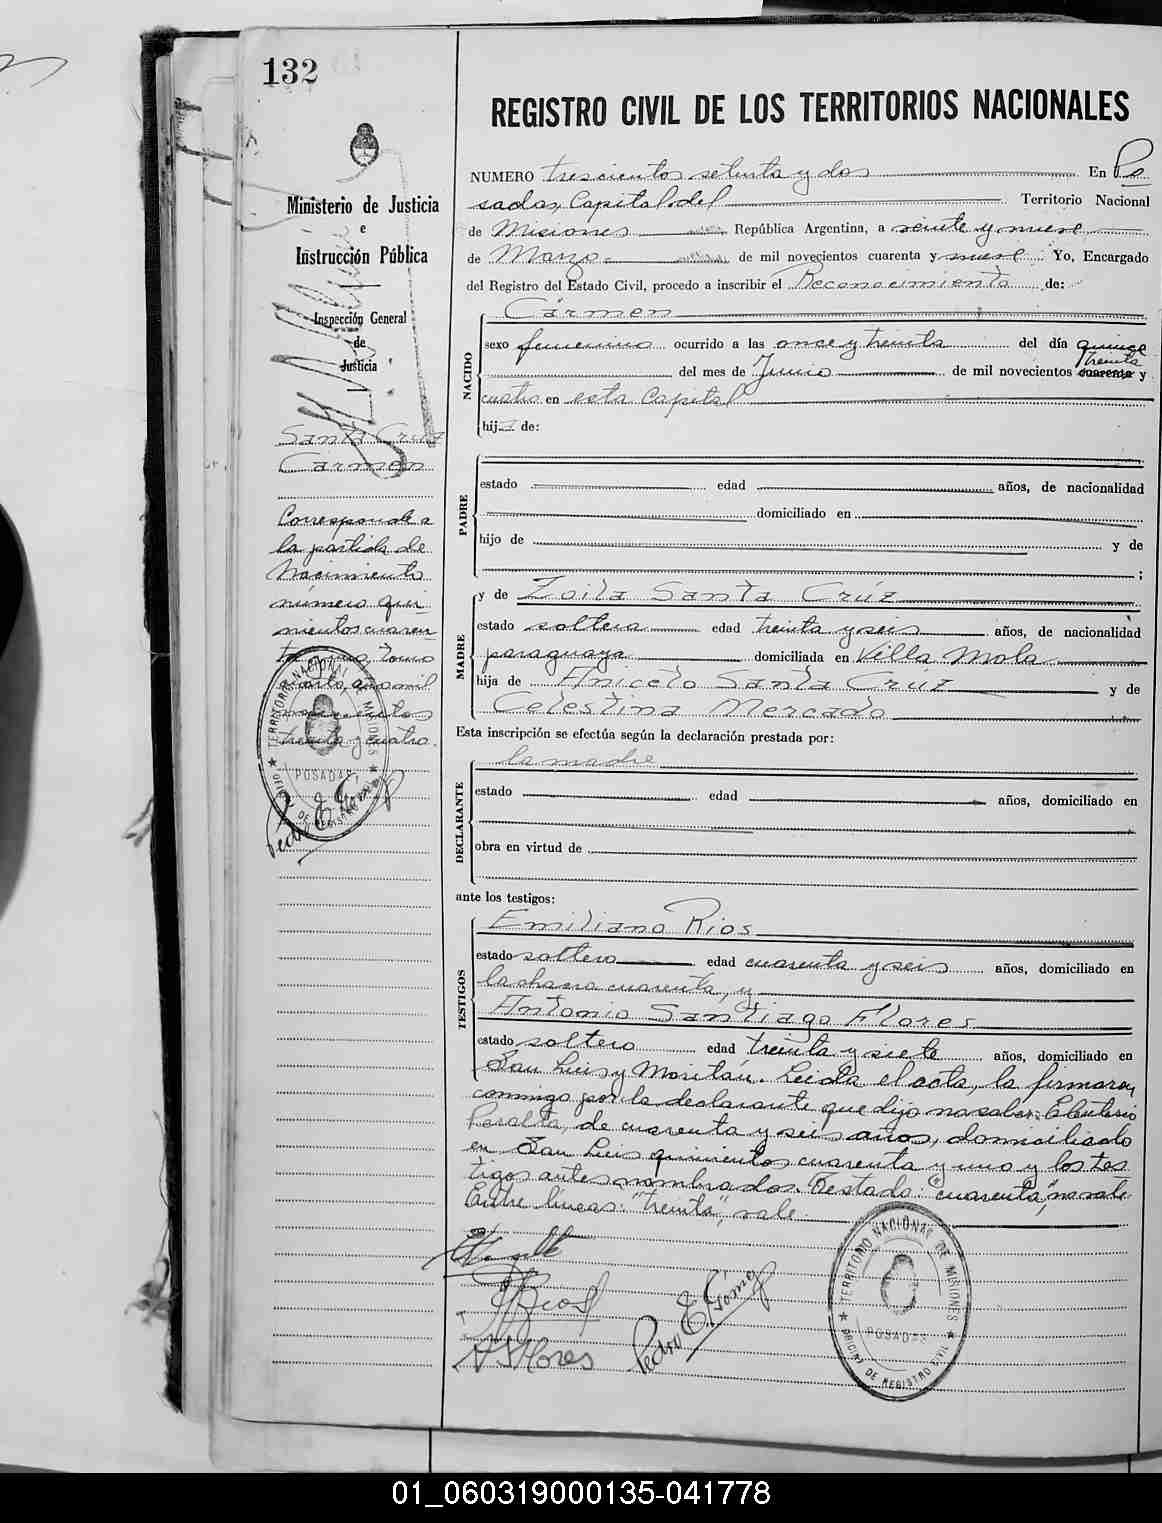 132
REGISTRO CIVIL DE LOS TERRITORIOS NACIONALES
Ministerio de Justicia
e
Instrucción Pública
Inspección General
de
Justicia
Santa Cruz
Carmen
Corresponde a
la partida de
Nacimiento
número qui
nientos cuaren
ta y uno, Tomo
cuarto, año mil
novecientos
treinta y cuatro.
TERRITORIO NACIONAL DE MISIONES
POSADAS
OFICINA DE REGISTRO CIVIL
Pedro E. Gómez
NUMERO trescientos setenta y dos En Po
sadas, Capital del Territorio Nacional
de Misiones República Argentina, a veinte y nueve
de Marzo de mil novecientos cuarenta y nueve Yo, Encargado
del Registro del Estado Civil, procedo a inscribir el Reconocimiento de:
Cármen
NACIDO
sexo femenino ocurrido a las once y treinta del día quince
treinta
del mes de Junio de mil novecientos cuarenta y
cuatro en esta Capital
hija de:
PADRE
estado edad años, de nacionalidad
domiciliado en
hijo de y de
;
MADRE
y de Zoila Santa Crúz
estado soltera edad treinta y seis años, de nacionalidad
paraguaya domiciliada en Villa Mola
hija de Aniceto Santa Crúz y de
Celestina Mercado
Esta inscripción se efectúa según la declaración prestada por:
DECLARANTE
la madre
estado edad años, domiciliado en
obra en virtud de
ante los testigos:
TESTIGOS
Emiliano Rios
estado soltero edad cuarenta y seis años, domiciliado en
la chacra cuarenta, y
Antonio Santiago Flores
estado soltero edad treinta y siete años, domiciliado en
San Luis y Moritán. Leida el acta, la firmaron
conmigo por la declarante que dijo no saber: Eleuterio
Peralta, de cuarenta y seis años, domiciliado
en San Luis quinientos cuarenta y uno y los tes
tigos antes nombrados. Testado: "cuarenta", no vale.
Entre líneas: "treinta", vale.
Rios
A S Flores
Pedro E. Gómez
TERRITORIO NACIONAL DE MISIONES
POSADAS
OFICINA DE REGISTRO CIVIL
01_060319000135-041778